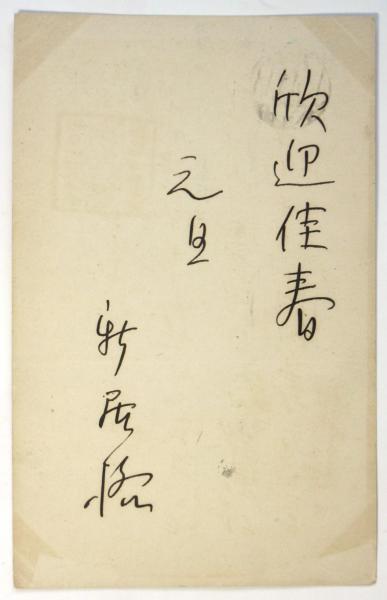 欣迎佳春
元旦
新居格